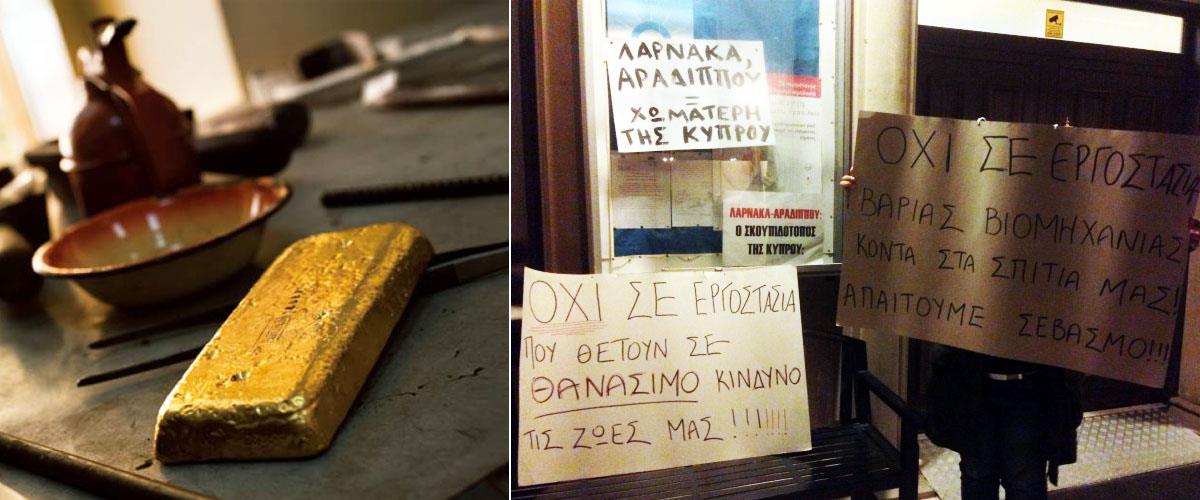 ΛΑΡΝΑΚΑ,
ΑΡΑΔΙΠΠΟΥ
=
ΧΩΜΑΤΕΡΗ
ΤΗΣ ΚΥΠΡΟΥ
ΛΑΡΝΑΚΑ-ΑΡΑΔΙΠΠΟΥ:
Ο ΣΚΟΥΠΙΔΟΤΟΠΟΣ
ΤΗΣ ΚΥΠΡΟΥ:
ΟΧΙ ΣΕ ΕΡΓΟΣΤΑΣΙΑ
ΠΟΥ ΘΕΤΟΥΝ ΣΕ
ΘΑΝΑΣΙΜΟ ΚΙΝΔΥΝΟ
ΤΙΣ ΖΩΕΣ ΜΑΣ !!!!!!!
ΟΧΙ ΣΕ ΕΡΓΟΣΤΑΣΙΑ
ΒΑΡΙΑΣ ΒΙΟΜΗΧΑΝΙΑΣ
ΚΟΝΤΑ ΣΤΑ ΣΠΙΤΙΑ ΜΑΣ!
ΑΠΑΙΤΟΥΜΕ ΣΕΒΑΣΜΟ!!!